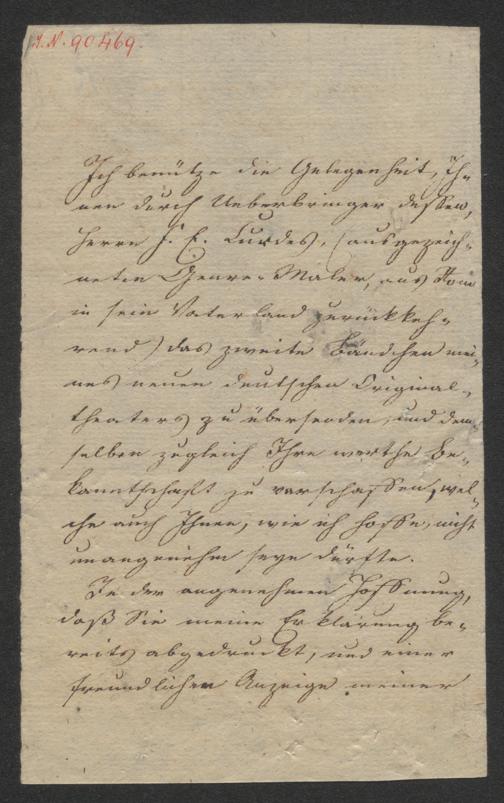 I.N. 90469.
Ich benütze die Gelegenheit, Ih-
nen durch Ueberbringer dessen,
Herrn J. E. Lurdes, (ausgezeich-
neten Genre-Maler, aus Rom
in sein Vaterland zurückkeh-
rend) das zweite Bändchen mei-
nes neuen deutschen Original-
theaters zu übersenden, und dem-
selben zugleich Ihre werthe Be-
kanntschaft zu verschaffen, wel-
che auch Ihnen, wie ich hoffe, nicht
unangenehm seyn dürfte.
In der angenehmen Hoffnung,
daß Sie meine Erklärung be-
reits abgedruckt, und einer
freundlichen Anzeige meiner